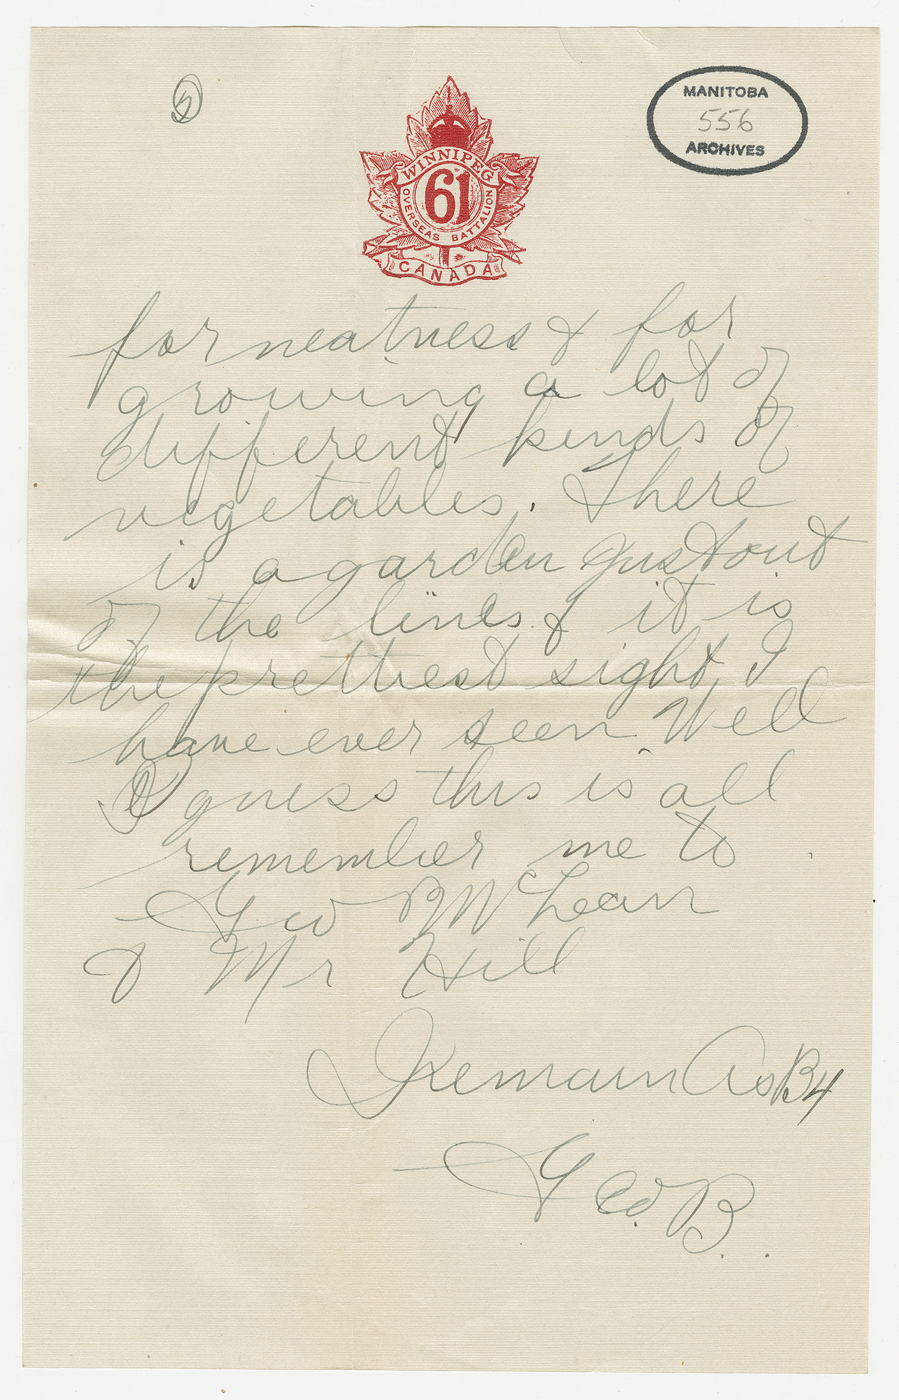 5
MANITOBA
556
ARCHIVES
WINNIPEG
61
OVERSEAS BATTALION
CANADA
for neatness & for
growing a lot of
different kinds of
vegetables. There
is a garden just out
of the lines & it is
the prettiest sight I
have ever seen Well
I guess this is all
remember me to
Geo McLean
& Mr Hill
I Remain As B4
Geo. B.